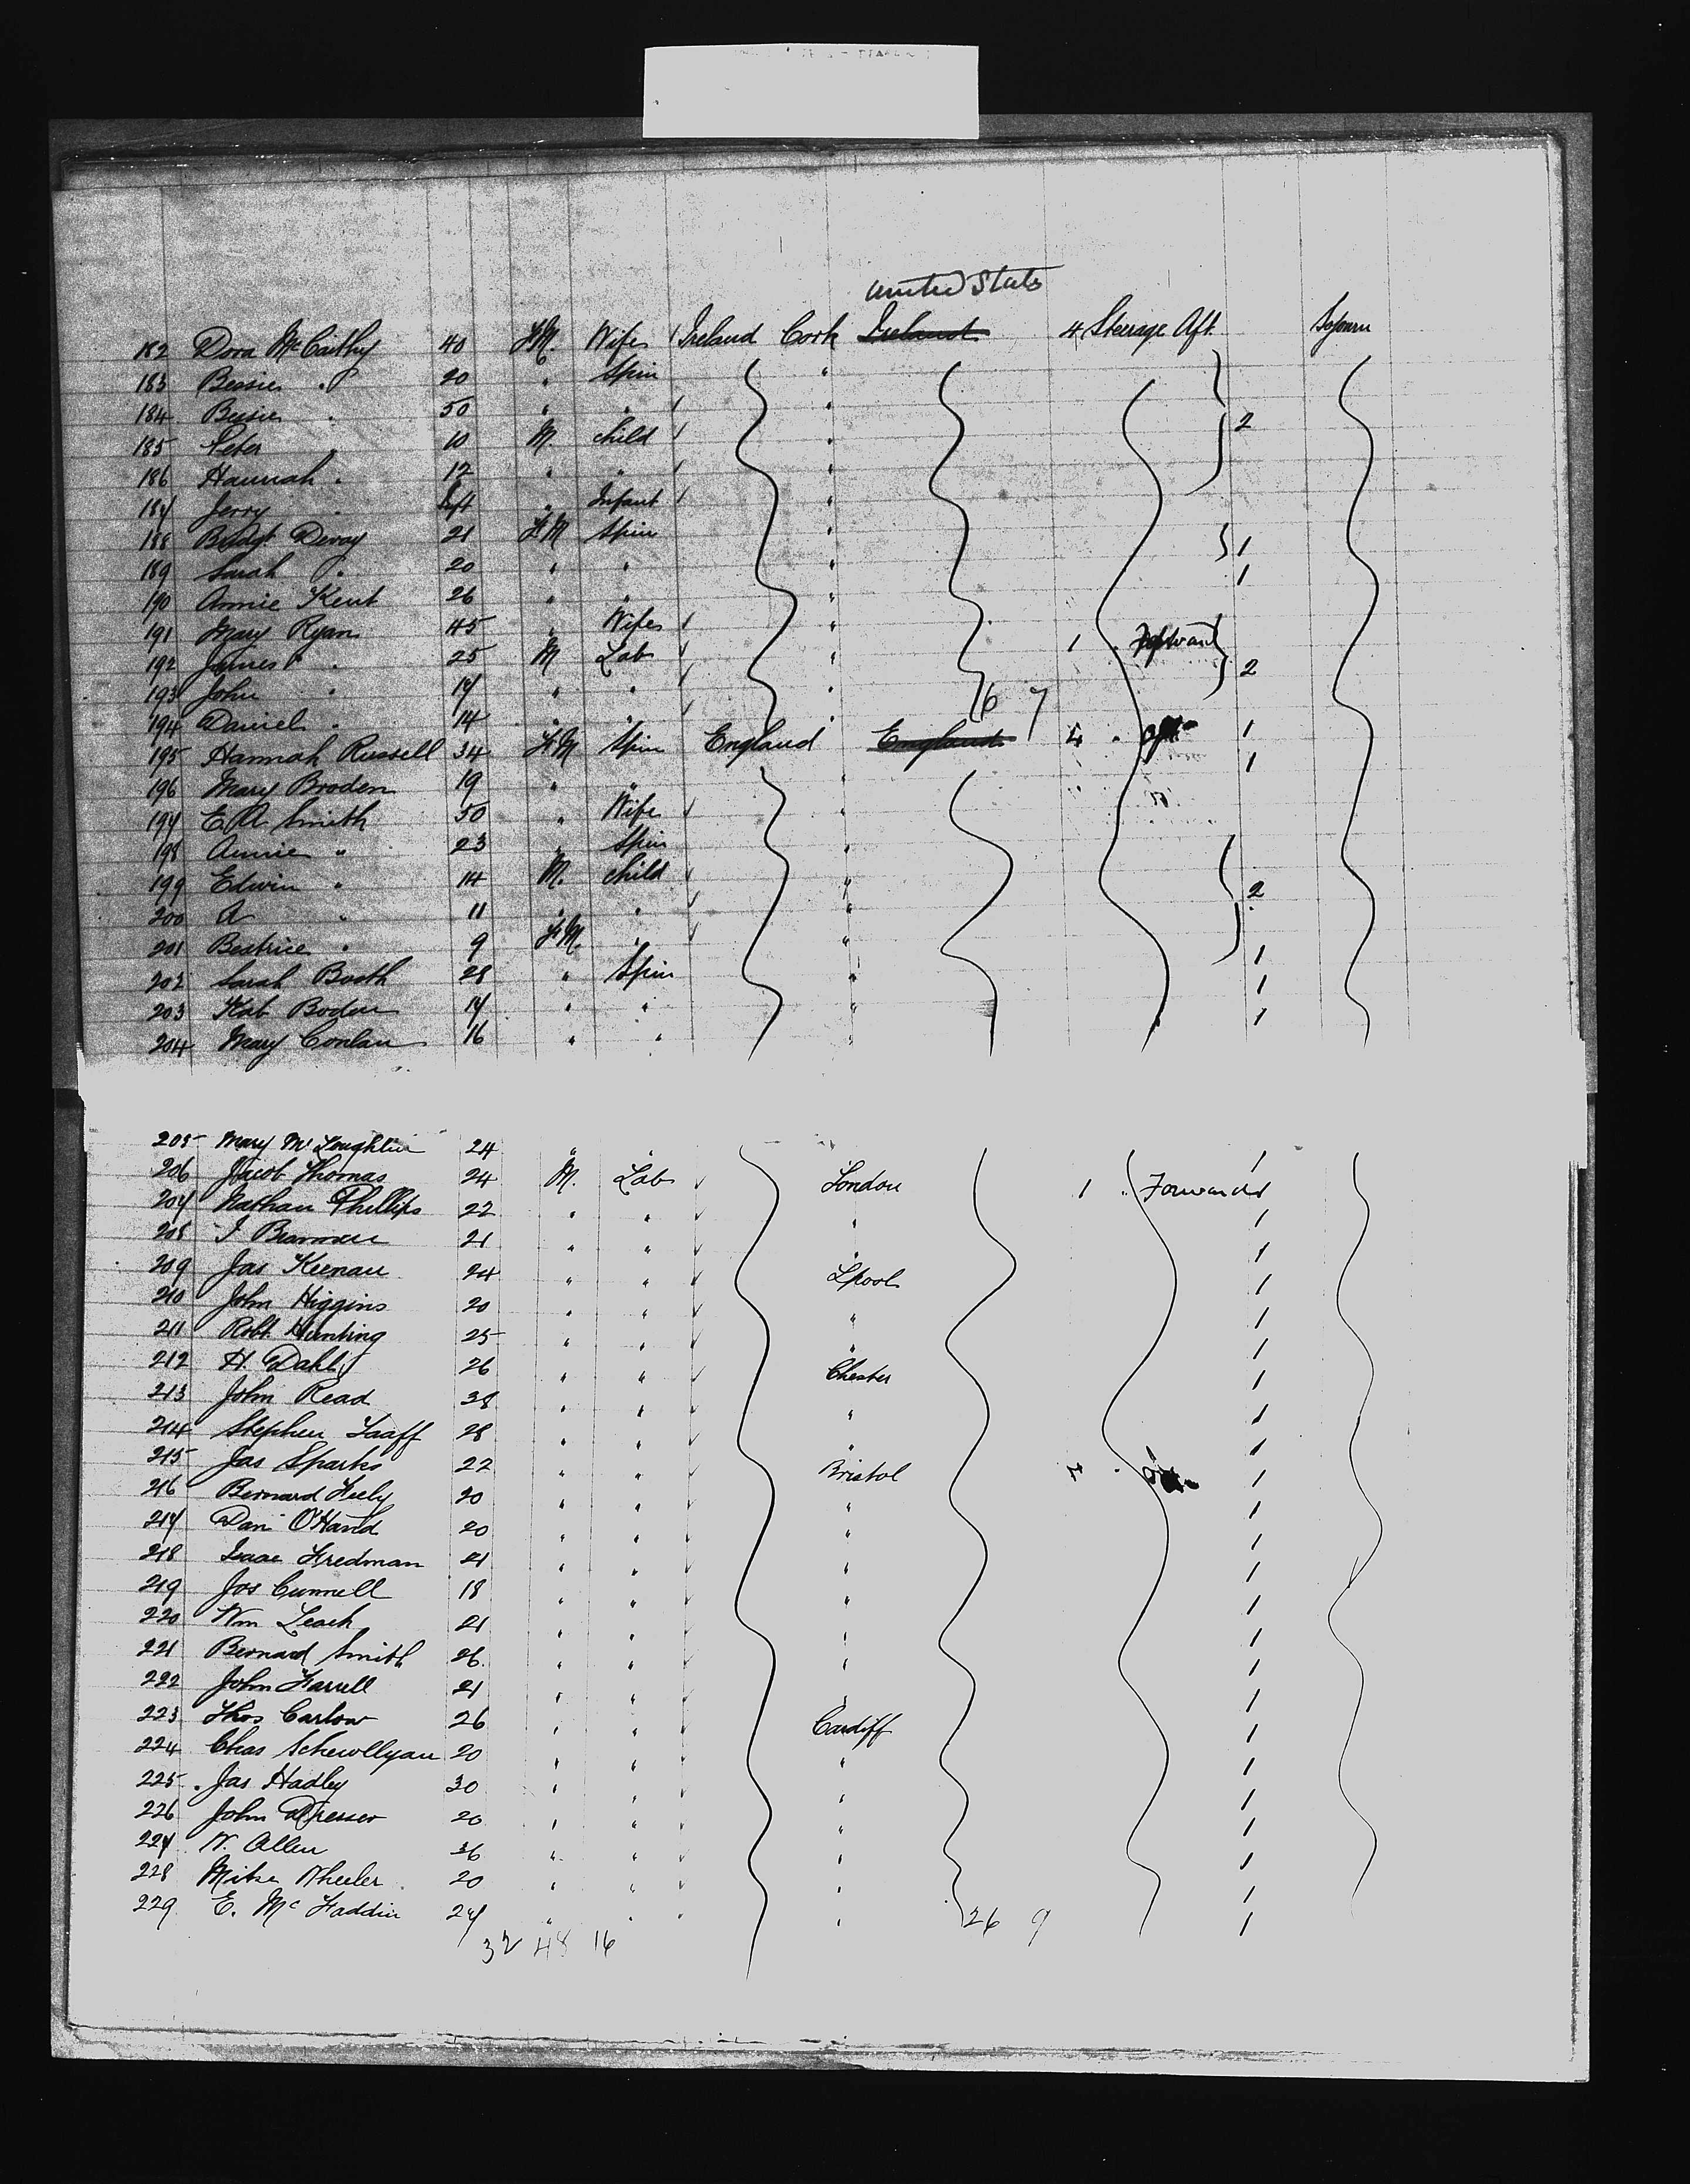 United States
182 Dora McCarthy 40 F.M. Wife Ireland Cork Ireland 4 Steerage Aft. Sojourn
183 Bessie " 20 " Spin "
184 Bessie " 50 " " "
185 Peter " 10 M. child " 2
186 Hannah " 12 " " "
187 Jerry " " Infant "
188 Bridgt Devay 21 F.M Spin "
189 Sarah " 20 " " " 1
190 Annie Kent 26 " " " 1
191 Mary Ryan 45 " Wife "
192 James " 25 M Lab " 1 " Forward 2
193 John " 17 " " "
194 Daniel " 14 " " " 6 7
195 Hannah Russell 34 F.M Spin England England 4 " aft 1
196 Mary Broden 19 " " " 1
197 E.A Smith 50 " Wife "
198 Annie " 23 " Spin "
199 Edwin " 14 M. child "
200 A " 11 " " " 2
201 Beatrice " 9 F.M. " "
202 Sarah Booth 28 " Spin " 1
203 Kat Boden 17 " " " 1
204 Mary Conlan 16 " " " 1
205 Mary McLoughlin 24 " " 1
206 Jacob Thomas 24 M. Lab London 1 " Forward 1
207 Nathan Phillips 22 " " " 1
208 I 21 " " " 1
209 Jas Keenan 24 " " Lpool 1
210 John Higgins 20 " " " 1
211 Robt Hunting 25 " " " 1
212 H. Dahl 26 " " Chester 1
213 John Read 38 " " " 1
214 Stephen Taaff 28 " " " 1
215 Jas Sparks 22 " " Bristol 4 " 1
216 Bernard Feely 20 " " " 1
217 Danl O'Hand 20 " " " 1
218 Isaac Fredman 21 " " " 1
219 Jos Cunnell 18 " " " 1
220 Wm Leach 21 " " " 1
221 Bernard Smith 26 " " " 1
222 John Farrell 21 " " " 1
223 Thos Carlow 26 " " Cardiff 1
224 Chas Schewllyan 20 " " " 1
225 Jas Hadley 30 " " " 1
226 John Dresser 20 " " " 1
227 W. Allen 36 " " " 1
228 Mike Wheeler 20 " " " 1
229 E. McFaddin 27 " " " 26 9 1
32 48 16